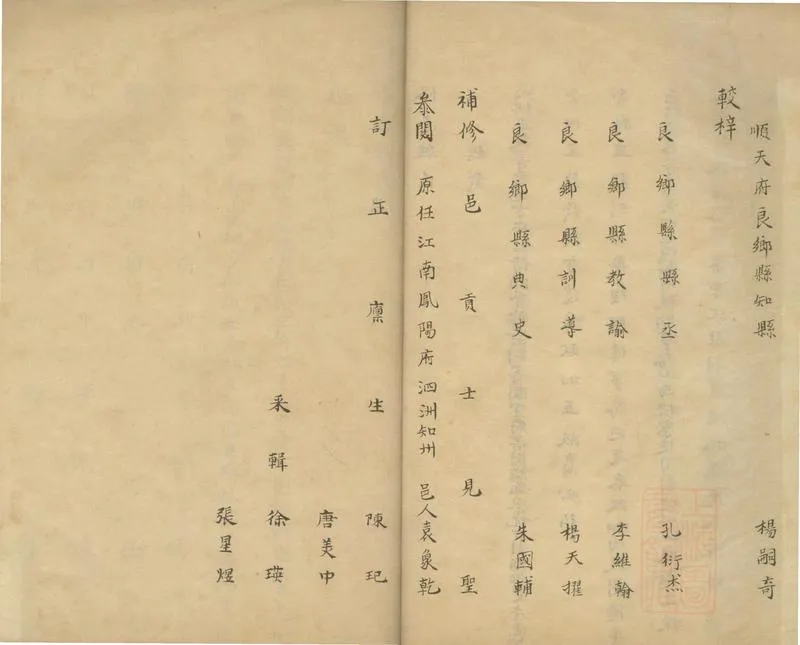 順天府良鄉縣知縣 楊嗣奇
較梓
良鄉縣縣丞 孔衍杰
良鄉縣教諭 李維翰
良鄉縣訓導 楊天擢
良鄉縣典史 朱國輔
補修邑貢士見聖
叅閱 原任江南鳳陽府泗洲知州 邑人袁象乾
訂正廪生 陳玘
唐美中
采輯 徐瑛
張星煜